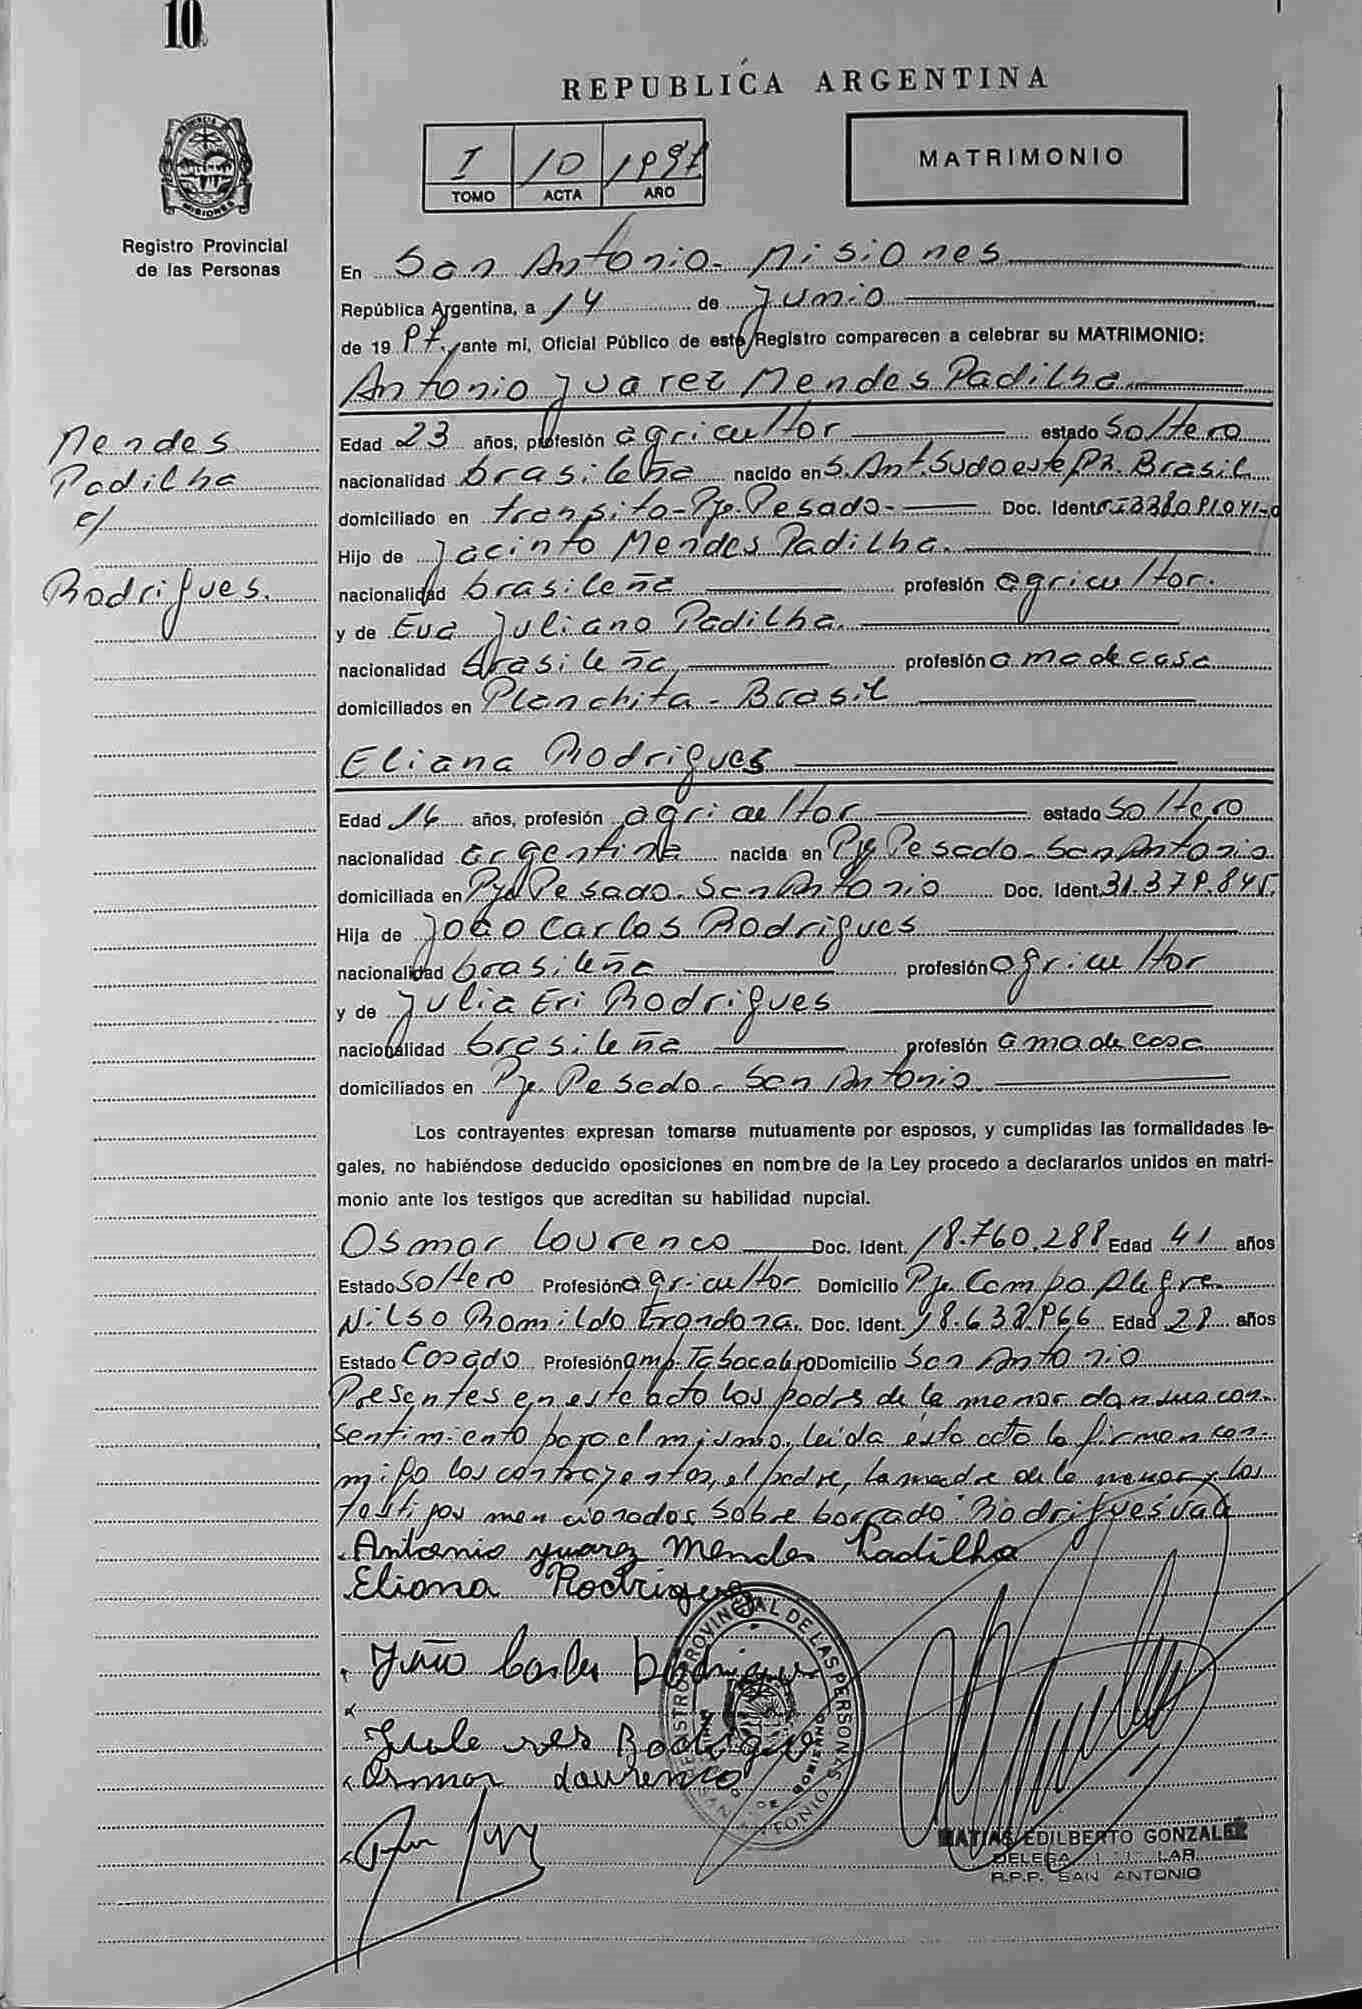 10
REPUBLICA ARGENTINA
I 10 1997
TOMO ACTA AÑO
MATRIMONIO
PROVINCIA DE MISIONES
Registro Provincial
de las Personas
En San Antonio - Misiones
República Argentina, a 14 de Junio
de 19 97, ante mi, Oficial Público de este Registro comparecen a celebrar su MATRIMONIO:
Antonio Juarez Mendes Padilha
Mendes
Padilha
c/
Rodrigues.
Edad 23 años, profesión agricultor estado Soltero
nacionalidad brasileña nacido en S. Ant. Sudoeste, PR. Brasil
domiciliado en transito - Pje. Pesado - Doc. Ident.
Hijo de Jacinto Mendes Padilha.
nacionalidad brasileña profesión agricultor.
y de Eva Juliano Padilha.
nacionalidad brasileña profesión ama de casa
domiciliados en Planchita - Brasil
Eliana Rodrigues
Edad 16 años, profesión agricultor estado Soltero
nacionalidad argentina nacida en Pje Pesado - San Antonio
domiciliada en Pje Pesado - San Antonio Doc. Ident. 31.379.845.
Hija de Joao Carlos Rodrigues
nacionalidad brasileña profesión agricultor
y de Julia Eri Rodrigues
nacionalidad brasileña profesión ama de casa
domiciliados en Pje. Pesado - San Antonio.
Los contrayentes expresan tomarse mutuamente por esposos, y cumplidas las formalidades le-
gales, no habiéndose deducido oposiciones en nombre de la Ley procedo a declararlos unidos en matri-
monio ante los testigos que acreditan su habilidad nupcial.
Osmar Lourenco Doc. Ident. 18.760.288 Edad 41 años
Estado Soltero Profesión agricultor Domicilio Pje. Campo Alegre
Nilso Romildo Doc. Ident. 18.638.966 Edad 28 años
Estado Casado Profesión Domicilio San Antonio
Presentes en este acto los padres de la menor dan su con-
sentimiento para el mismo, leida esta acta la firman con-
migo los contrayentes, el padre, la madre de la menor y los
testigos mencionados Sobre borrado "Rodrigues" vale
Antonio Juarez Mendes Padilha
Eliana Rodrigues
João Carlos Rodrigues
Rodrigues
Osmar Lourenco
REGISTRO PROVINCIAL DE LAS PERSONAS
SAN ANTONIO
MATIAS EDILBERTO GONZALEZ
R.P.P. SAN ANTONIO